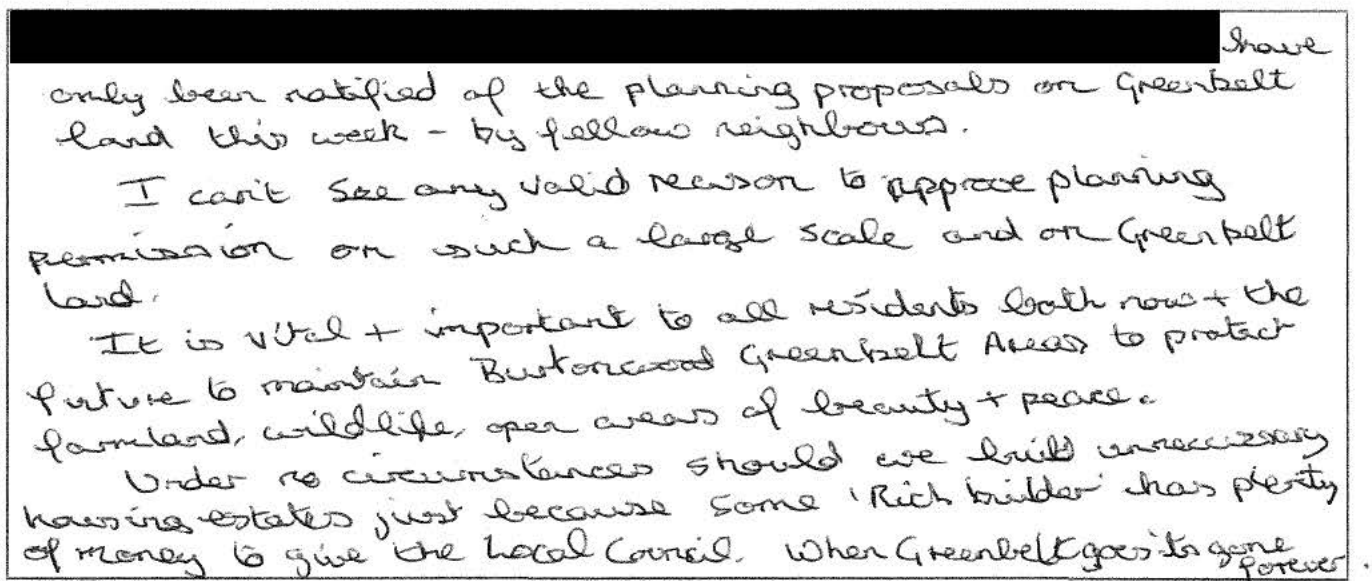 have
only been notified of the planning proposals on Greenbelt
land this week - by fellow neighbours.
I can't see any valid reason to approve planning
permission on such a large scale and on Greenbelt
land.
It is vital + important to all residents both now + the
future to maintain Burtonwood Greenbelt Areas to protect
farmland, wildlife, open areas of beauty + peace.
Under no circumstances should we build unneccessary
housing estates just because some 'Rich builder' has plenty
of money to give the Local Council. When Greenbelt goes its gone
forever.